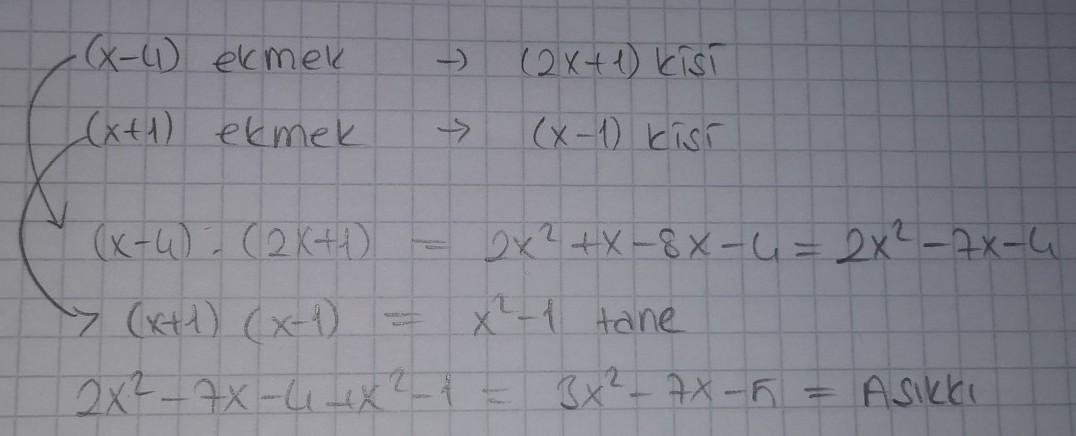 (x-4) ekmek → (2x+1) kişi
(x+1) ekmek → (x-1) kişi
(x-4) . (2x+1) = 2x² +x-8x-4 = 2x²-7x-4
(x+1) (x-1) = x²-1 tane
2x²-7x-4+x²-1 = 3x²-7x-5 = A şıkkı